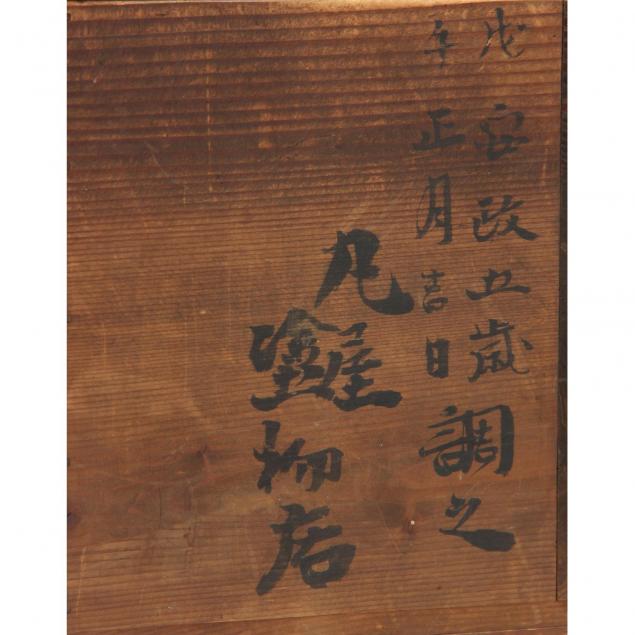 戊安政五歳
午正月吉日
調之
丸屋
塗物店